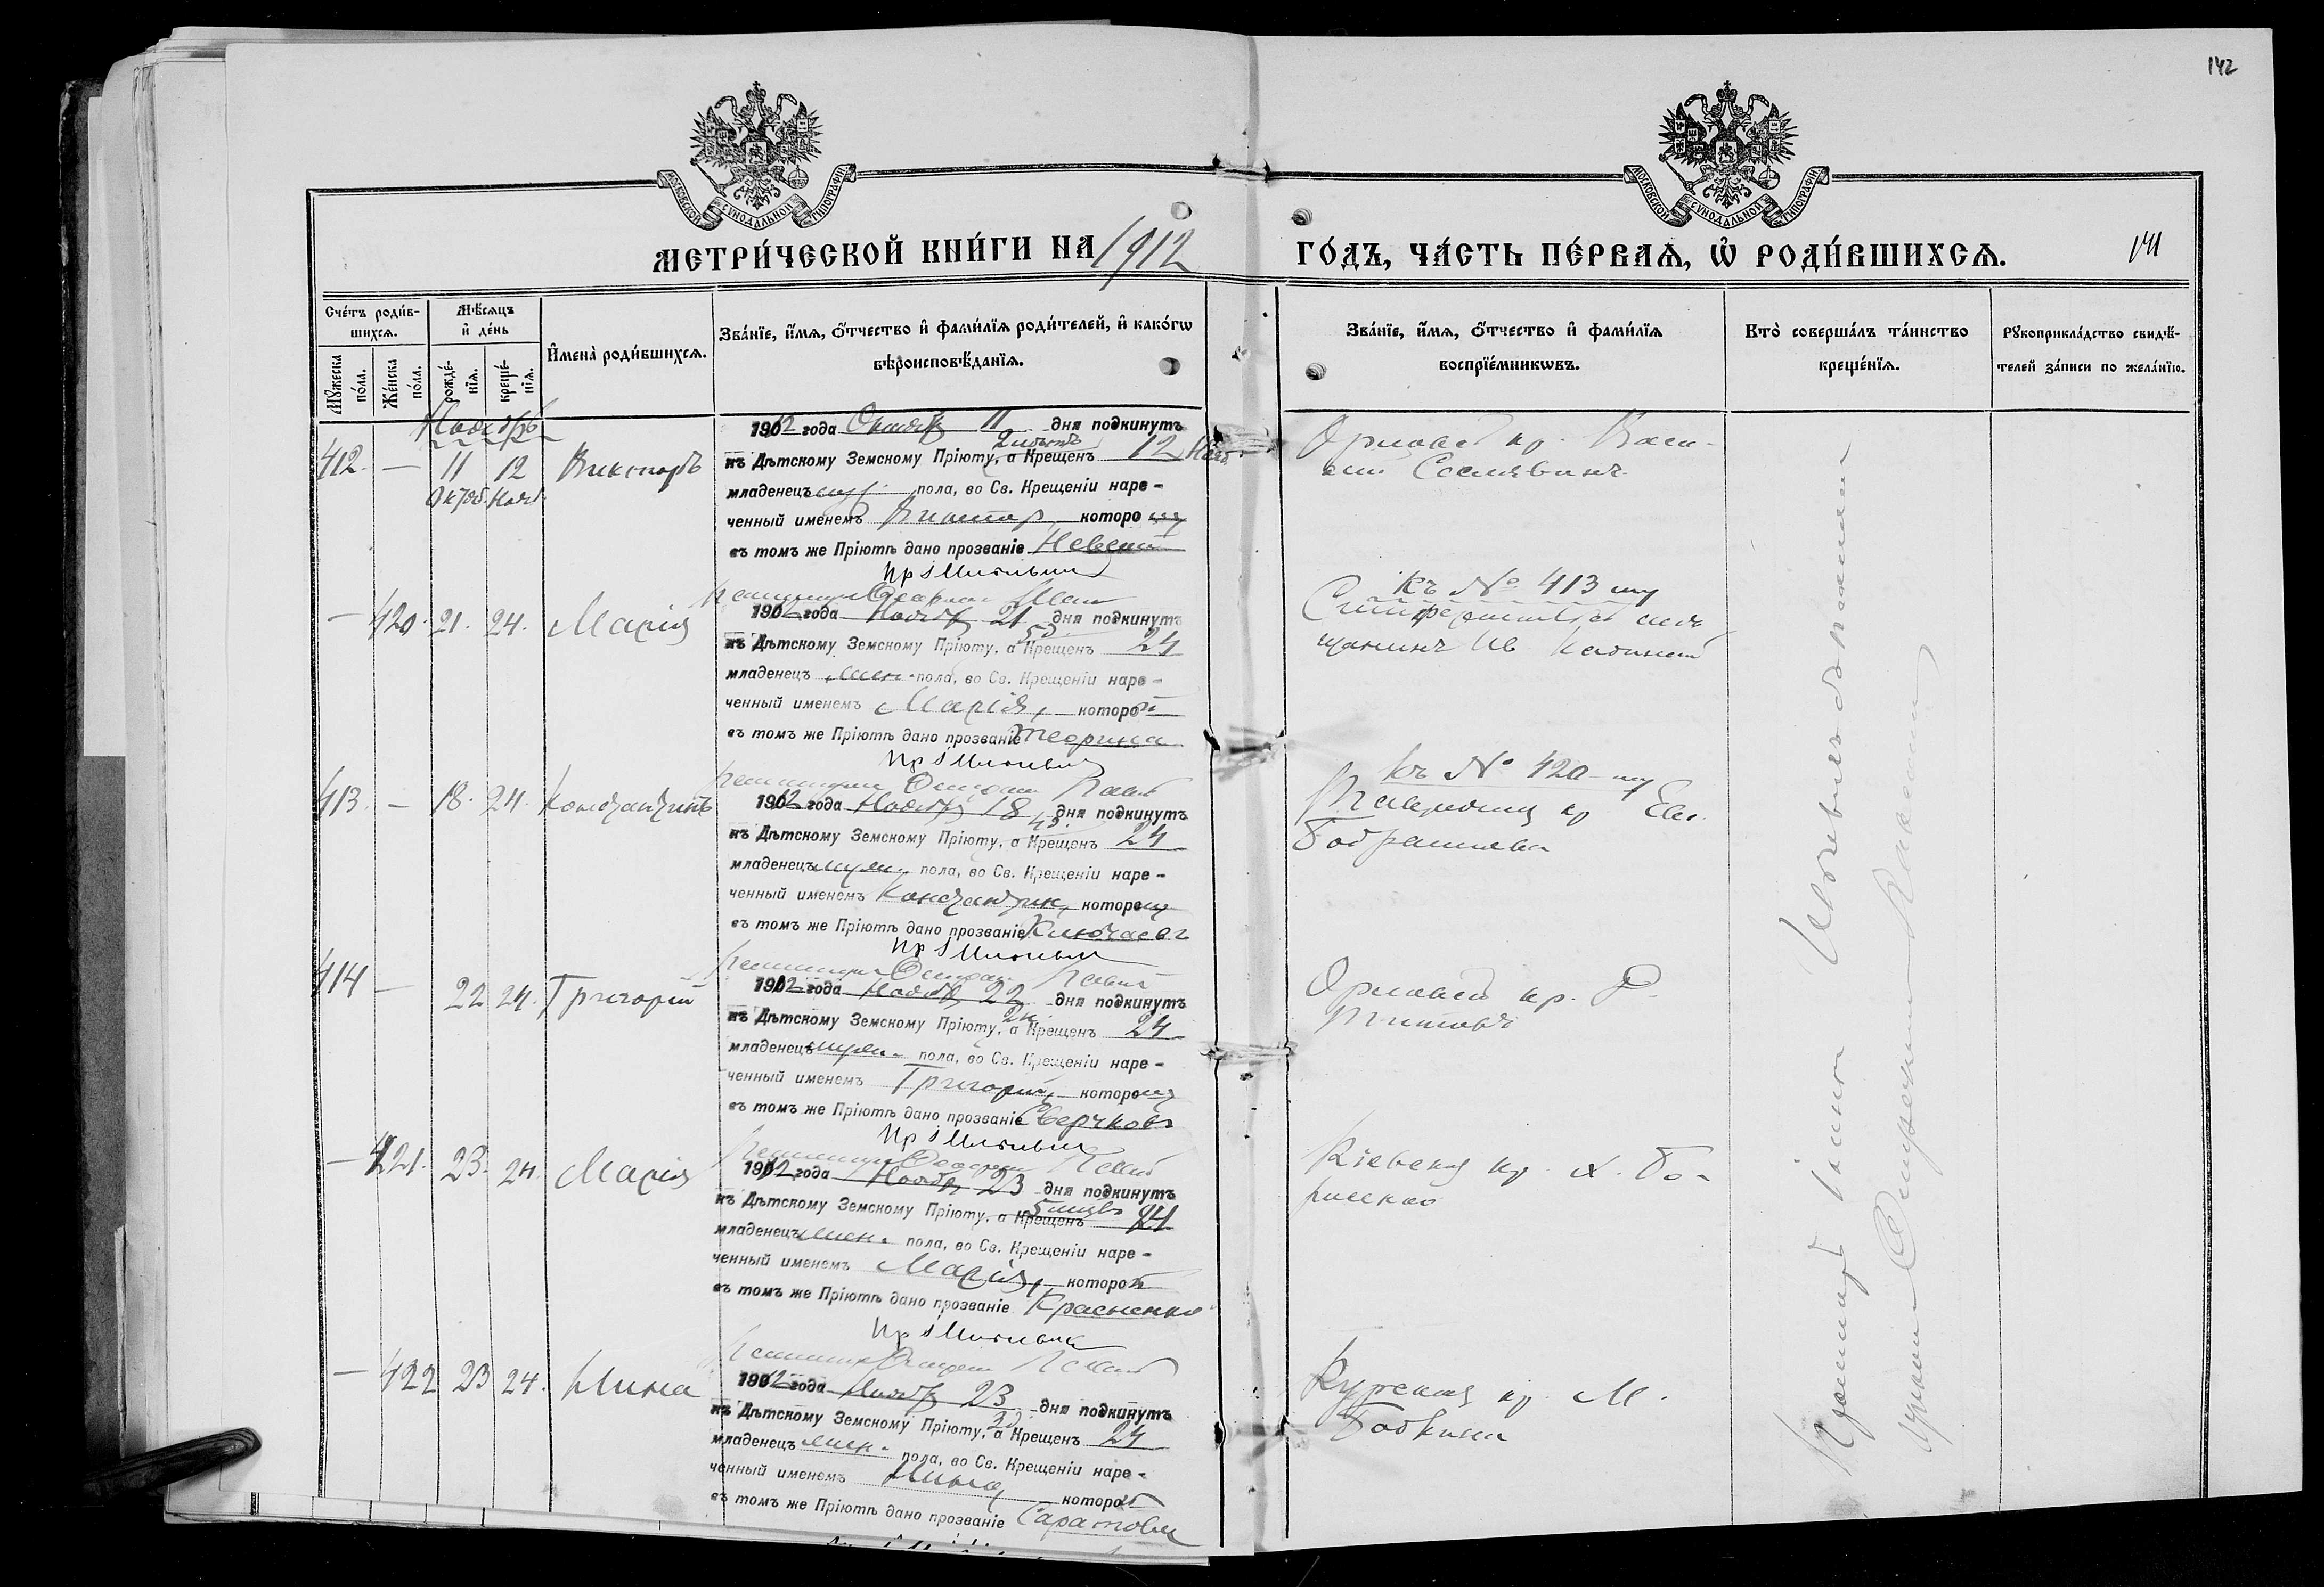 142
МОСКОВСКОЙ СѴНОДАЛЬНОЙ ТИПОГРАФІИ
МОСКОВСКОЙ СѴНОДАЛЬНОЙ ТИПОГРАФІИ
МЕТРИ́ЧЕСКОЙ КНИ́ГИ НА 1912 ГО́ДЪ, ЧА́СТЬ ПЕ́РВАѦ, Ѡ҆ РОДИ́ВШИХСѦ.
141
Сче́тъ роди́в-
шихсѧ.
Мѣ́сѧцъ
и҆ де́нь
Мꙋ́жеска по́ла.
Же́нска по́ла.
рожде́-
нїѧ.
креще́-
нїѧ.
И҆мена̀ роди́вшихсѧ.
Зва́нїе, и҆́мѧ, ѻ҆́тчество и҆ фами́лїѧ роди́телей, и҆ како́гѡ
вѣроисповѣ́данїѧ.
Зва́нїе, и҆́мѧ, ѻ҆́тчество и҆ фами́лїѧ
воспрїе́мникѡвъ.
Кто̀ соверша́лъ та́инство
креще́нїѧ.
Рꙋкоприкла́дство свидѣ́-
телей за́писи по жела́нїю.
Ноябрь
412. — 11 12 Викторъ
Октяб. Нояб.
1912 года Октяб 11 дня подкинутъ
къ Дѣтскому Земскому Пріюту, а Крещенъ 12 Нояб.
младенецъ муж. пола, во Св. Крещеніи наре-
ченный именемъ Виктор, которому
въ томъ же Пріютѣ дано прозваніе Невскій
Орловс кр. Васи-
лій
— 420. 21. 24. Марія
1912 года Нояб 21 дня подкинутъ
къ Дѣтскому Земскому Пріюту, а Крещенъ 24
младенецъ жен. пола, во Св. Крещеніи наре-
ченный именемъ Марія, которой
въ томъ же Пріютѣ дано прозваніе
Къ № 413 му
щанинъ Ив.
413. — 18. 24. Константинъ
1912 года Нояб 18 дня подкинутъ
къ Дѣтскому Земскому Пріюту, а Крещенъ 24
младенецъ муж. пола, во Св. Крещеніи наре-
ченный именемъ Константин, которому
въ томъ же Пріютѣ дано прозваніе Ключаевъ
Къ № 420 му
414 — 22 24. Григорій
1912 года Нояб 22 дня подкинутъ
къ Дѣтскому Земскому Пріюту, а Крещенъ 24
младенецъ муж. пола, во Св. Крещеніи наре-
ченный именемъ Григорій, которому
въ томъ же Пріютѣ дано прозваніе Сверчковъ
Орловск кр. Ѳ.
Титовъ
— 421. 23. 24. Марія
1912 года Нояб 23 дня подкинутъ
къ Дѣтскому Земскому Пріюту, а Крещенъ 24
младенецъ жен. пола, во Св. Крещеніи наре-
ченный именемъ Марія, которой
въ томъ же Пріютѣ дано прозваніе Красненко
Кіевская кр. Х. Бо-
рисенко
— 422 23 24. Нина
1912 года Нояб 23 дня подкинутъ
къ Дѣтскому Земскому Пріюту, а Крещенъ 24
младенецъ жен. пола, во Св. Крещеніи наре-
ченный именемъ Нина, которой
въ томъ же Пріютѣ дано прозваніе Саратова
Курская кр. М.
Бабкина